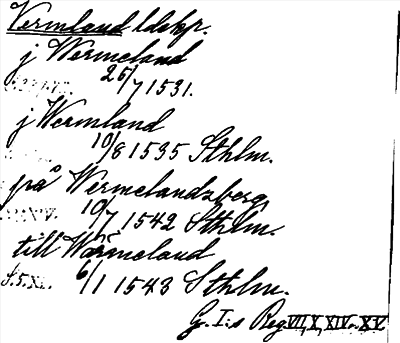 Vermland ldskp.
j Wermeland
25/7 1531.
j Wermland
10/8 1535 Sthlm.
på Wermelandzberg
10/7 1542 Sthlm.
till Wärmeland
6/1 1543 Sthlm.
G. I:s Reg. VII, X, XIV o. XV.